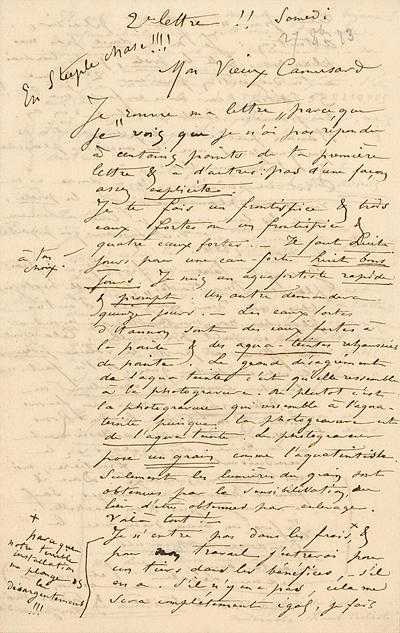 2e lettre !! Samedi
27 83
En Steeple chase !!!
Mon Vieux Camusard
Je "rouvre ma lettre" parce que
je vois que je n'ai pas répondu
à certains points de ta première
lettre & à d'autres: pas d'une façon
assez explicite.
Je te fais un frontispice & trois
eaux fortes ou un frontispice &
quatre eaux fortes. — Il faut huit
à ton
choix!
jours pour une eau forte huit bons
jours. Je suis un aquafortiste rapide
& prompt. Un autre demandera
quinze jours. — Les eaux fortes
d'Hannon sont des eaux fortes à
la pointe & des aqua-teintes rehaussées
de pointe. Le grand désagrément
de l'aqua teinte c'est qu'elle ressemble
à la photogravure. ou plutot c'est
la photogravure qui ressemble à l'aqua
teinte puisque la photogravure est
de l'aqua teinte. Le photograveur
pose un grain comme l'aquateintiste.
Seulement les lumières du grain sont
obtenues par la sensibilisation, au
lieu d'être obtenues par
Voilà tout!
Je n'entre pas dans les frais,+ &
pour mon travail j'entrerai pour
un tiers dans les bénéfices, s'il
en a. s'il n'y en a pas, cela me
sera complètement égal, je fais
+
parceque
notre
installation
me plonge ds
le
désargentement
!!!